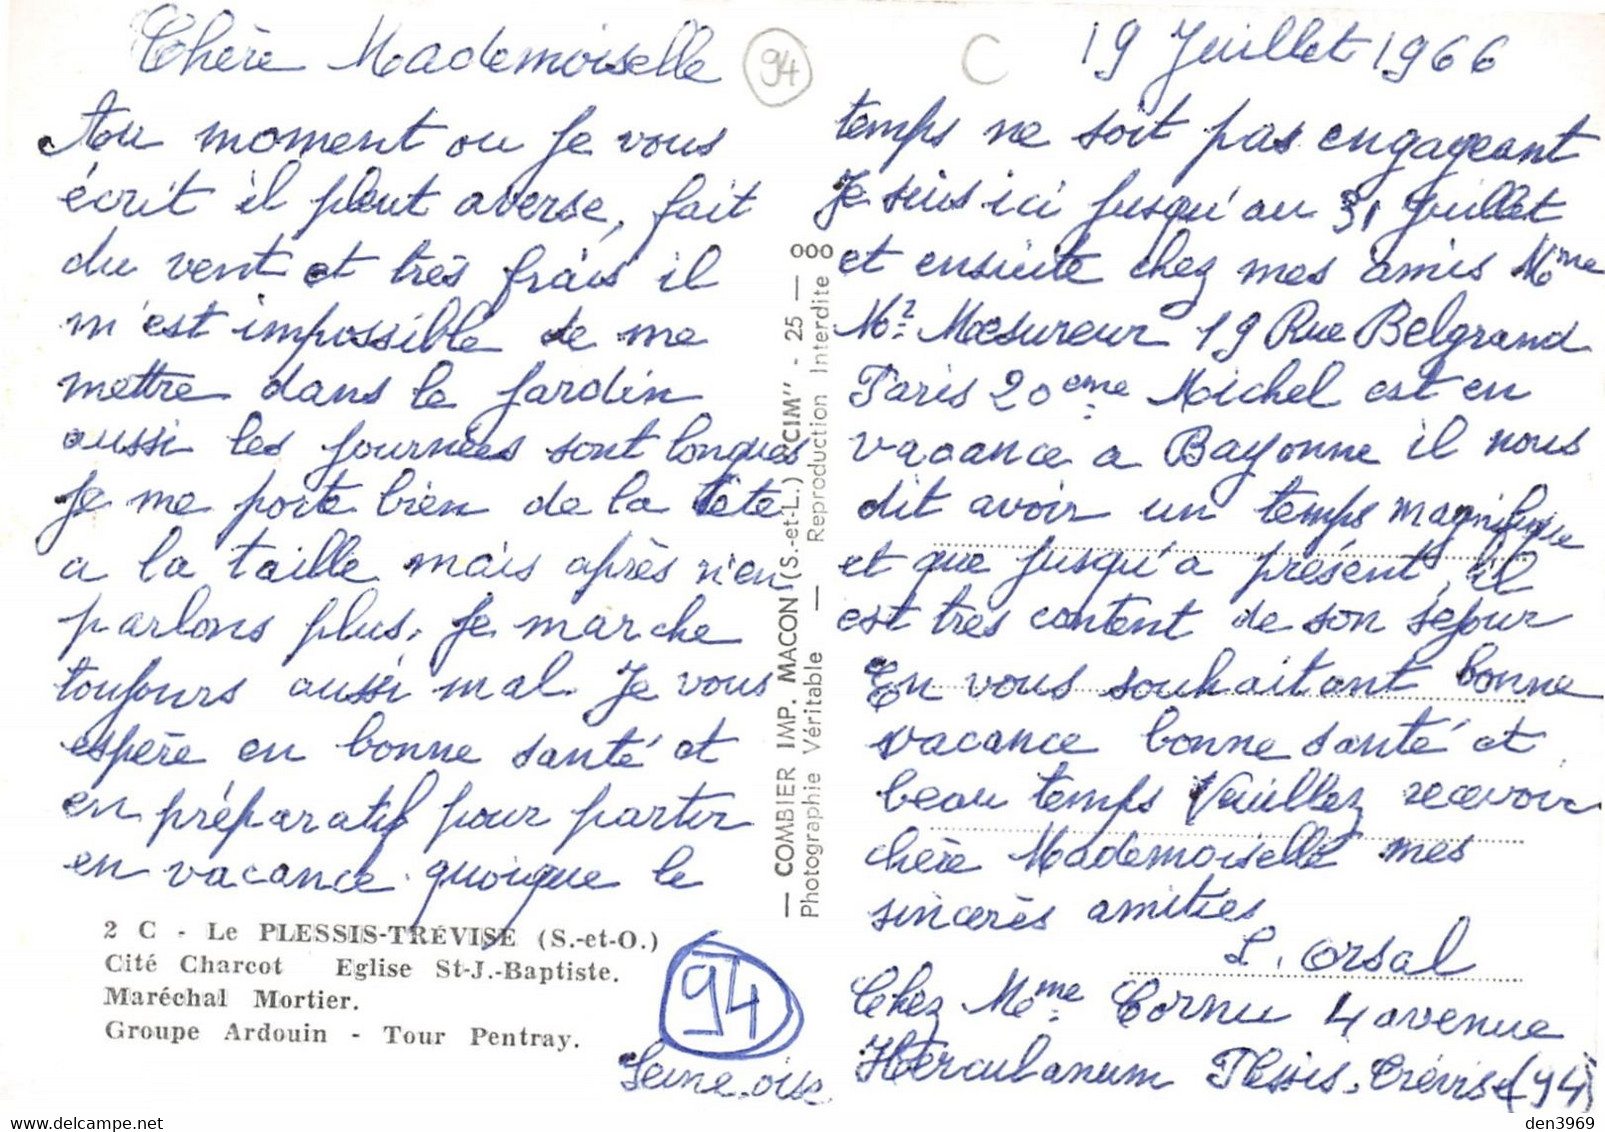 Chère Mademoiselle
Au moment ou je vous
écrit il pleut averse, fait
du vent et très frais il
m'est impossible de me
mettre dans le jardin
aussi les journées sont longues
Je me porte bien de la tête
a la taille mais après n'en
parlons plus, je marche
toujours aussi mal. Je vous
espère en bonne santé et
en préparatif pour partir
en vacance quoique le
2 C - Le PLESSIS-TRÉVISE (S.-et-O.)
Cité Charcot Eglise St-J.-Baptiste.
Maréchal Mortier.
Groupe Ardouin - Tour Pentray.
94
Seine-oise
94
C
— COMBIER IMP. MACON (S.-et-L.) "CIM" - 25 — ooo
Photographie Véritable — Reproduction Interdite
19 Juillet 1966
temps ne soit pas engageant
Je suis ici jusqu'au 31 juillet
et ensuite chez mes amis Mme
Mr Mesureur 19 Rue Belgrand
Paris 20eme Michel est en
vacance a Bayonne il nous
dit avoir un temps magnifique
et que jusqu'a présent, il
est très content de son séjour
En vous souhaitant bonne
vacance bonne santé et
beau temps Veuillez recevoir
chère Mademoiselle mes
sincères amitiés
L. Orsal
Chez Mme Cornu 4 avenue
Herculanum Plessis-Trévise (94)
delcampe.net
den3969